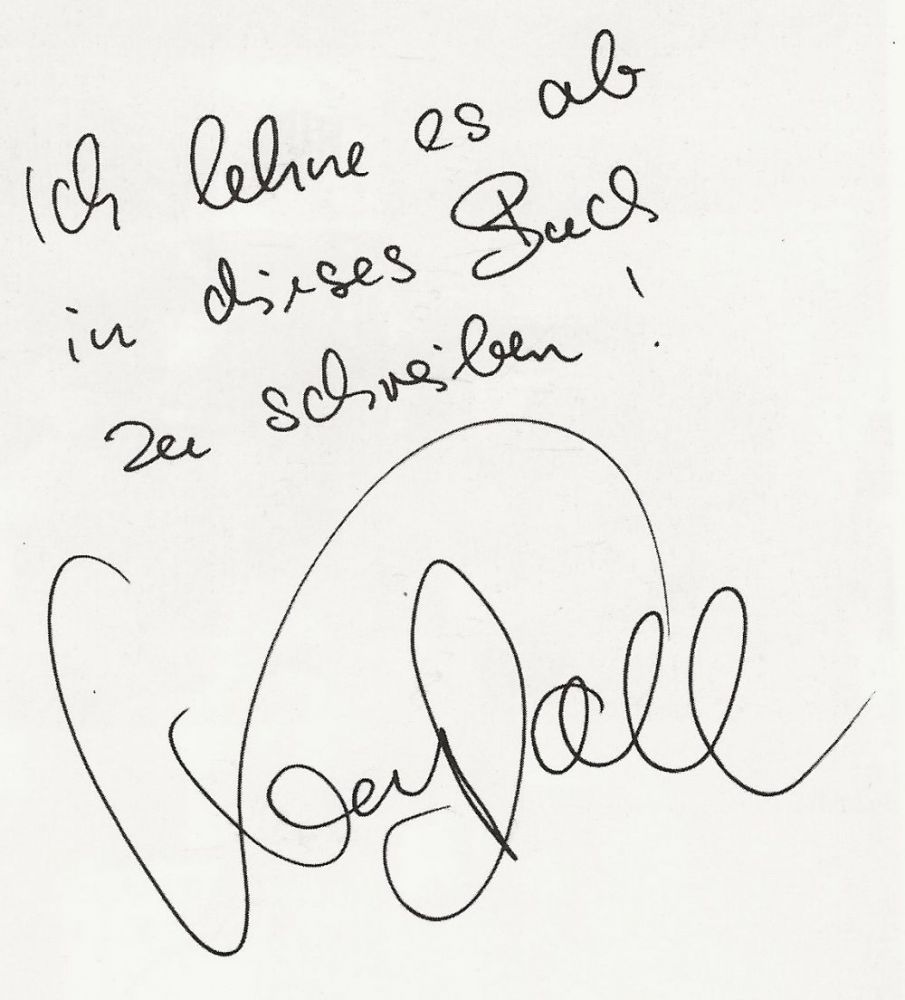 Ich lehne es ab
in dieses Buch
zu schreiben!